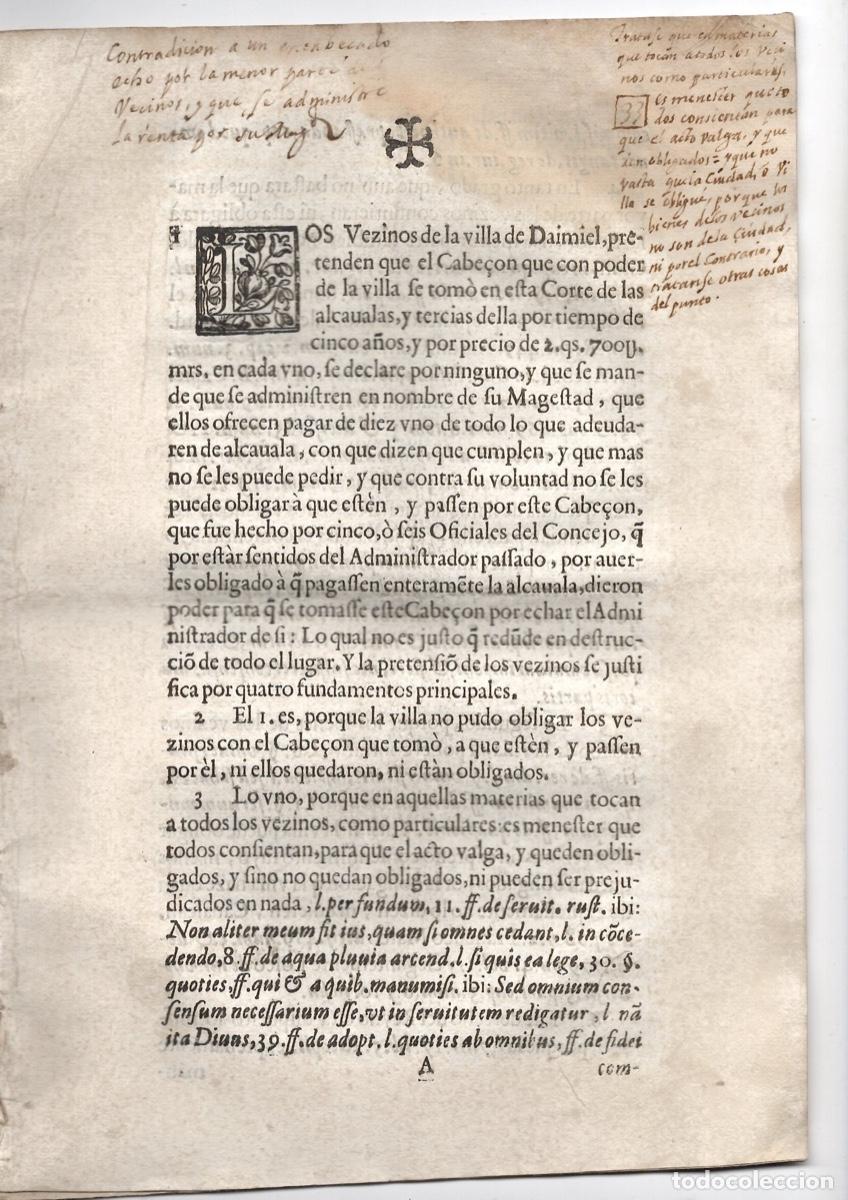 Contradicion a un encabeçado
echo por la menor parte de
Vecinos, y que se administre
la renta por su Mag
Tratase que en materias
que tocan a todos los Veci
nos como particulares,
es menester que to
dos consientan para
que el acto valga, y que
den obligados = y que no
vasta que la Ciudad, o Vi
lla se oblique, porque los
bienes de los vecinos
no son de la Ciudad,
ni por el Contrario, y
tratanse otras cosas
del punto.
1 LOS Vezinos de la villa de Daimiel, pre-
tenden que el Cabeçon que con poder
de la villa se tomò en esta Corte de las
alcaualas, y tercias della por tiempo de
cinco años, y por precio de 2. qs. 700U.
mrs. en cada vno, se declare por ninguno, y que se man-
de que se administren en nombre de su Magestad, que
ellos ofrecen pagar de diez vno de todo lo que adeuda-
ren de alcauala, con que dizen que cumplen, y que mas
no se les puede pedir, y que contra su voluntad no se les
puede obligar à que estèn, y passen por este Cabeçon,
que fue hecho por cinco, ò seis Oficiales del Concejo, q̃
por estàr sentidos del Administrador passado, por auer-
les obligado à q̃ pagassen enteramẽte la alcauala, dieron
poder para q̃ se tomasse este Cabeçon por echar el Admi
nistrador de si: Lo qual no es justo q̃ redũde en destruc-
ciõ de todo el lugar. Y la pretensiõ de los vezinos se justi
fica por quatro fundamentos principales.
2 El 1. es, porque la villa no pudo obligar los ve-
zinos con el Cabeçon que tomò, a que estèn, y passen
por èl, ni ellos quedaron, ni estàn obligados.
3 Lo vno, porque en aquellas materias que tocan
a todos los vezinos, como particulares: es menester que
todos consientan, para que el acto valga, y queden obli-
gados, y sino no quedan obligados, ni pueden ser preju-
dicados en nada, l. per fundum, 11. ff. de seruit. rust. ibi:
Non aliter meum fit ius, quam si omnes cedant, l. in cõce-
dendo, 8. ff. de aqua pluuia arcend. l. si quis ea lege, 30. §.
quoties, ff. qui & a quib. manumisi. ibi: Sed omnium con-
sensum necessarium esse, vt in seruitutem redigatur, l. nã
ita Diuus, 39. ff. de adopt. l. quoties ab omnibus, ff. de fidei
A com-
todocoleccion